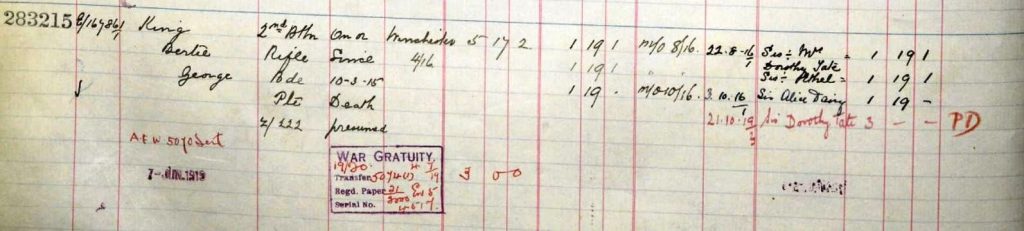 283215 E/167861/1 King 2nd Battn On or Manchester 5 17 2 1 19 1 M/O 8/16. 22.8.16 Sis: Mrs 1 19 1
Bertie Rifle Since 4/16 1 19 1 " " Dorothy Tate
George Bde 10-3-15 Sis: Ethel = 1 19 1
Pte Death 1 19 - M/O 10/16. 3.10.16 Sis Alice Daisy 1 19 -
Z/222 presumed 21.10.19 Sis Dorothy Tate 3 - - PD
A.F.W 5070 Sent
7-JUN.1919
WAR GRATUITY.
19/20
Transfer 3 0 0
Regd. Paper
Serial No.